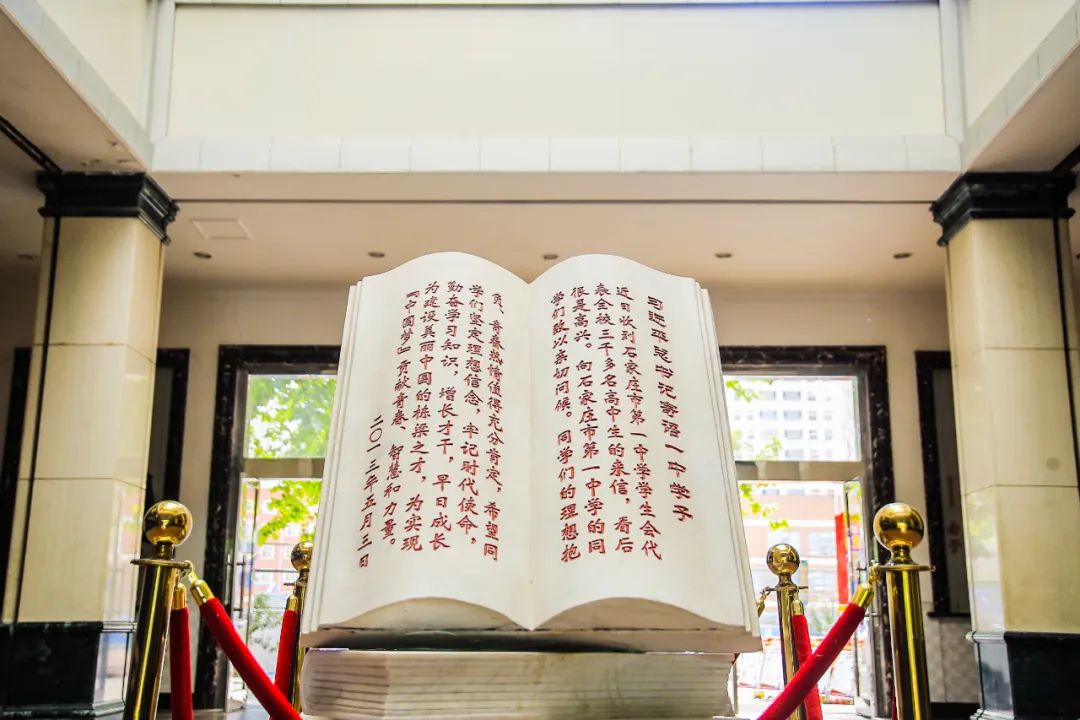 习近平总书记寄语一中学子
近日收到石家庄市第一中学学生会代
表全校三千多名高中生的来信，看后
很是高兴。向石家庄市第一中学的同
学们致以亲切问候。同学们的理想抱
负、青春热情值得充分肯定，希望同
学们坚定理想信念，牢记时代使命，
勤奋学习知识，增长才干，早日成长
为建设美丽中国的栋梁之才，为实现
『中国梦』贡献青春、智慧和力量。
二〇一三年五月三日